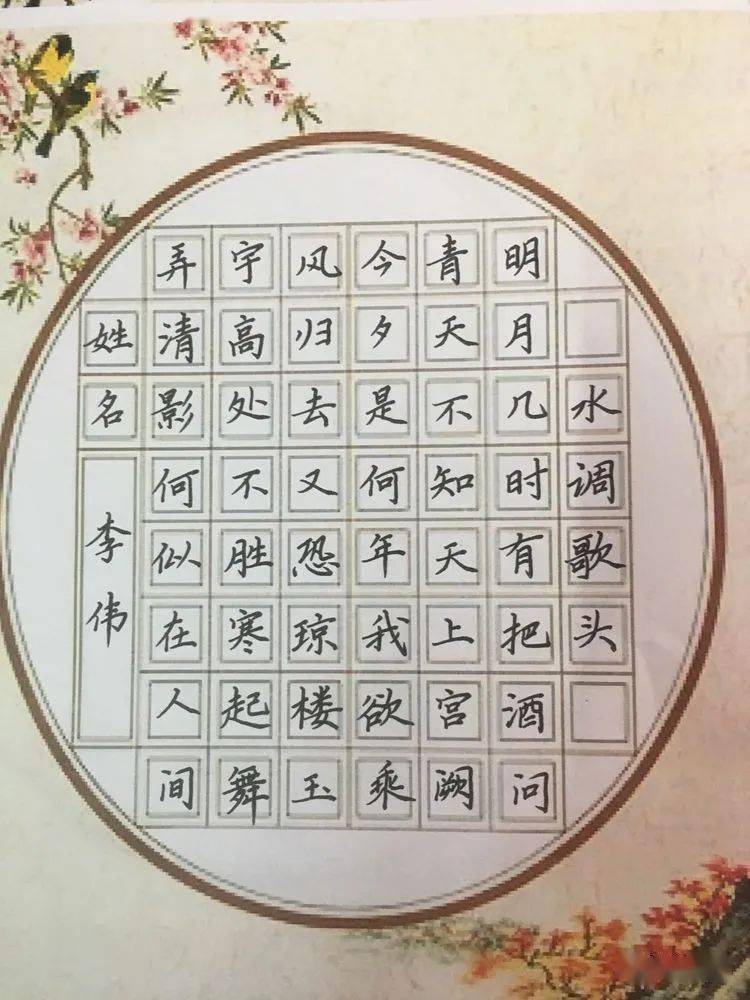 水调歌头
明月几时有把酒问
青天不知天上宫阙
今夕是何年我欲乘
风归去又恐琼楼玉
宇高处不胜寒起舞
弄清影何似在人间
姓名
李伟